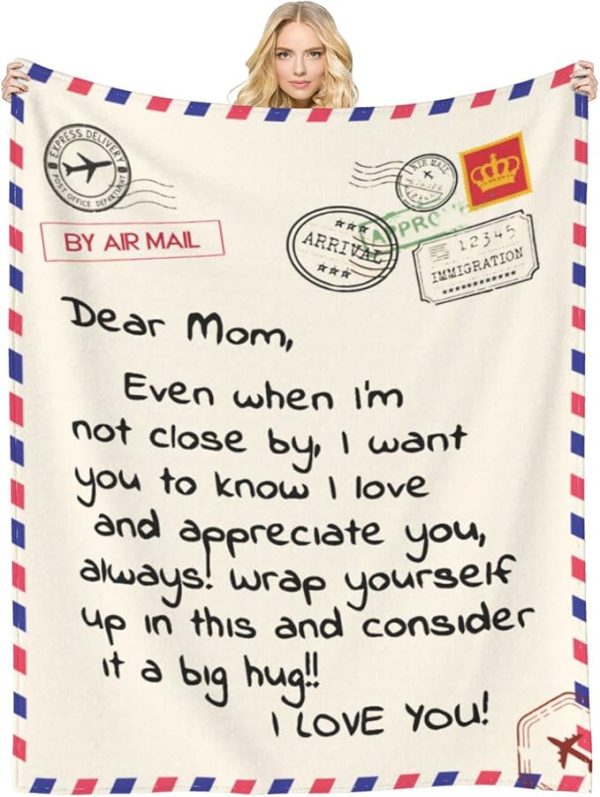 EXPRESS DELIVERY
POST OFFICE DEPARTMENT
AIR MAIL
BY AIR MAIL
ARRIVAL
12345
IMMIGRATION
Dear Mom,
Even when I'm
not close by, I want
you to know I love
and appreciate you,
always! wrap yourself
up in this and consider
it a big hug!!
I LOVE YOU!